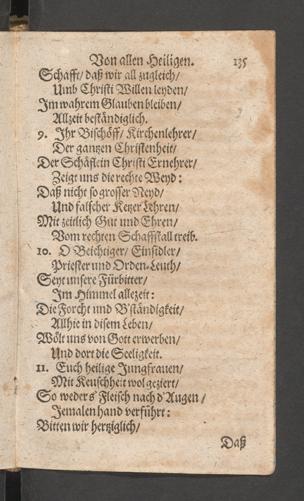 Von allen Heiligen. 135
Schafft/ daß wir all zugleich/
Umb Christi Willen leyden/
Im wahrem Glauben bleiben/
Allzeit beständiglich.
9. Ihr Bischöff/ Kirchenlehrer/
Der gantzen Christenheit/
Der Schäflein Christi Ernehrer/
Zeigt uns die rechte Weyd:
Daß nicht so grosser Neyd/
Und falscher Ketzer Lehren/
Mit zeitlich Gut und Ehren/
Vom rechten Schaffstall treib.
10. O Beichtiger/ Einsidler/
Priester und Orden-Leuth/
Seyt unsere Fürbitter/
Im Himmel allezeit:
Die Forcht und B'ständigkeit/
Allhie in disem Leben/
Wölt uns von Gott erwerben/
Und dort die Seeligkeit.
11. Euch heilige Jungfrauen/
Mit Keuschheit wol geziert/
So weder s' Fleisch nach d'Augen/
Jemalen hand verführt:
Bitten wir hertziglich/
Daß